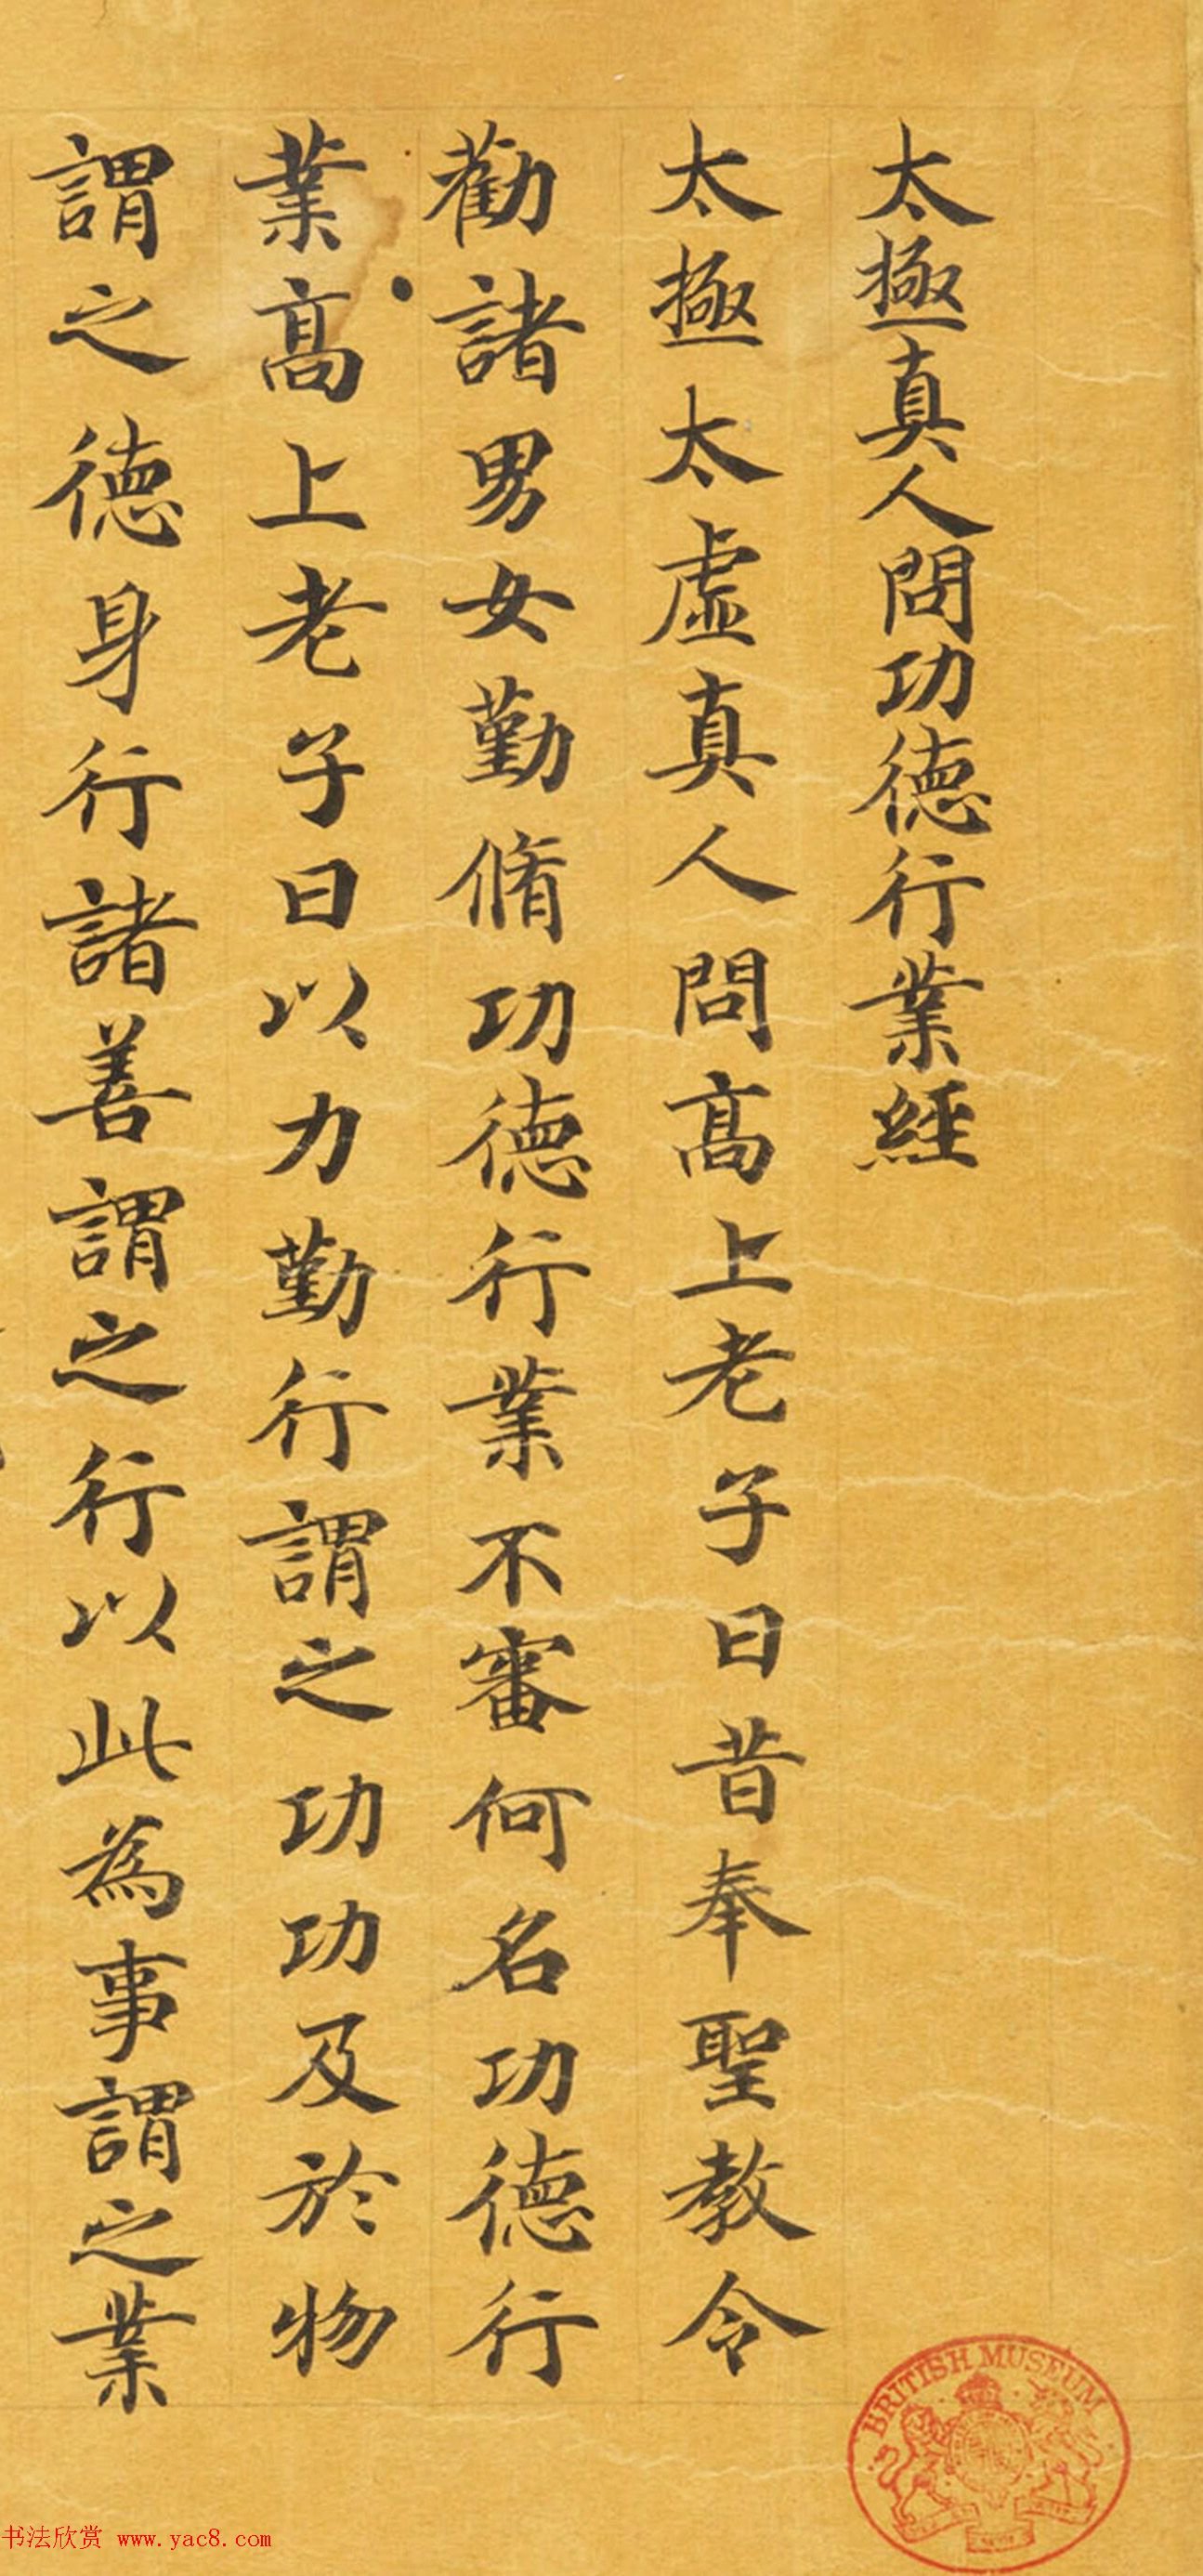 太極真人問功德行業經
太極太虛真人問高上老子曰昔奉聖教令
勸諸男女勤脩功德行業不審何名功德行
業高上老子曰以力勤行謂之功功及於物
謂之德身行諸善謂之行以此為事謂之業
BRITISH MUSEUM
书法欣赏 www.yac8.com